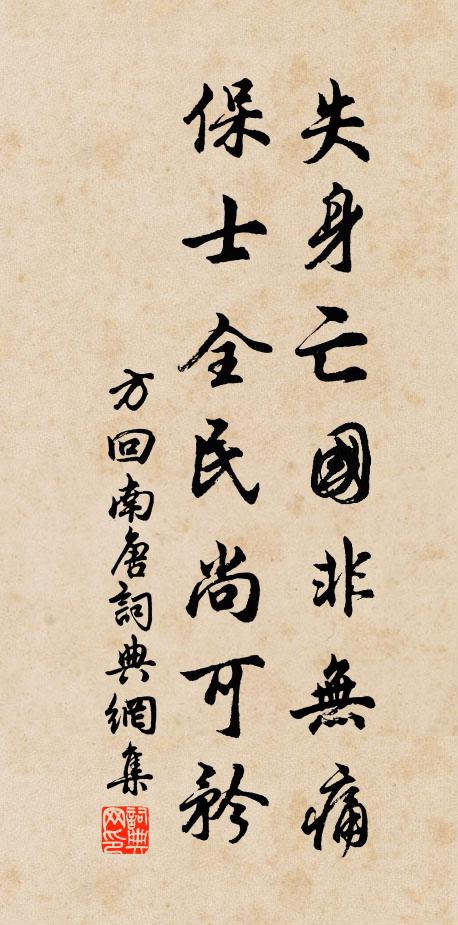 失身亡國非無痛
保士全民尚可矜
方回南唐詞典網集
詞典網印